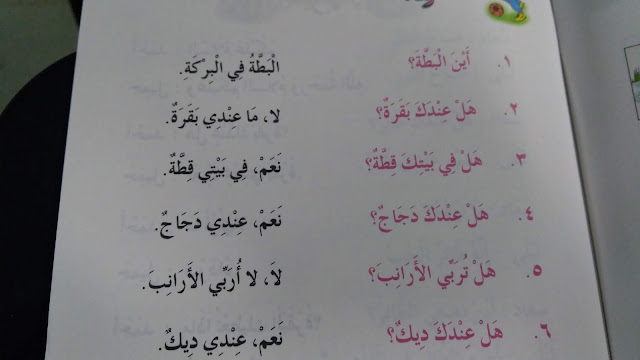 ١. أَيْنَ الْبَطَّةُ؟ الْبَطَّةُ فِي الْبِرْكَةِ.
٢. هَلْ عِنْدَكَ بَقَرَةٌ؟ لا، مَا عِنْدِي بَقَرَةٌ.
٣. هَلْ فِي بَيْتِكَ قِطَّةٌ؟ نَعَمْ، فِي بَيْتِي قِطَّةٌ.
٤. هَلْ عِنْدَكَ دَجَاجٌ؟ نَعَمْ، عِنْدِي دَجَاجٌ.
٥. هَلْ تُرَبِّي الأَرَانِبَ؟ لاَ، لا أُرَبِّي الأَرَانِبَ.
٦. هَلْ عِنْدَكَ دِيكٌ؟ نَعَمْ، عِنْدِي دِيكٌ.